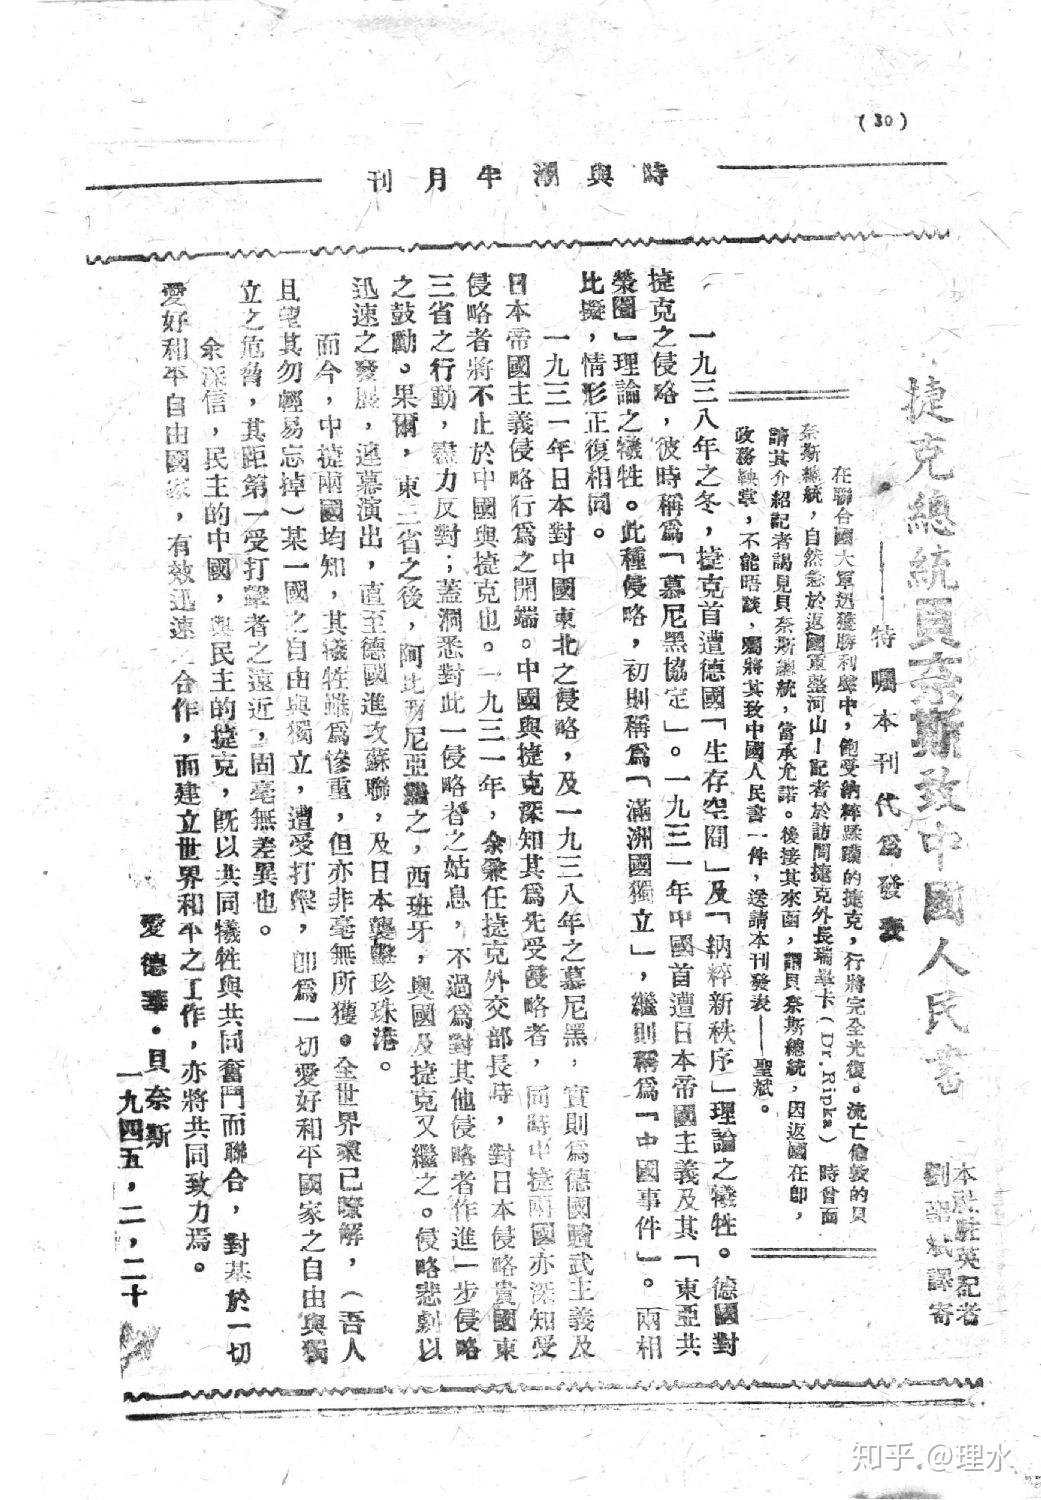 (30)
時與潮半月刊
捷克總統貝奈斯致中國人民書
——特囑本刊代為發表
本社駐英記者
劉聖斌譯寄
在聯合國大軍迅獲勝利聲中,飽受納粹蹂躪的捷克,行將完全光復。流亡倫敦的貝
奈斯總統,自然急於返國重整河山!記者於訪問捷克外長瑞畢卡(Dr. Ripka)時曾面
請其介紹記者謁見貝奈斯總統,當承允諾。後接其來函,謂貝奈斯總統,因返國在卽,
政務鞅掌,不能晤談,囑將其致中國人民書一件,送請本刊發表——聖斌。
一九三八年之冬,捷克首遭德國「生存空間」及「納粹新秩序」理論之犧牲。德國對
捷克之侵略,彼時稱爲「慕尼黑協定」。一九三一年中國首遭日本帝國主義及其「東亞共
榮圈」理論之犧牲。此種侵略,初則稱爲「滿洲國獨立」,繼則稱爲「中國事件」。兩相
比擬,情形正復相同。
一九三一年日本對中國東北之侵略,及一九三八年之慕尼黑,實則爲德國黷武主義及
日本帝國主義侵略行爲之開端。中國與捷克深知其爲先受侵略者,同時中捷兩國亦深知受
侵略者將不止於中國與捷克也。一九三一年,余兼任捷克外交部長時,對日本侵略貴國東
三省之行動,盡力反對;蓋洞悉對此一侵略者之姑息,不過爲對其他侵略者作進一步侵略
之鼓勵。果爾,東三省之後,阿比西尼亞繼之,西班牙,奧國及捷克又繼之。侵略悲劇以
迅速之發展,逐幕演出,直至德國進攻蘇聯,及日本襲擊珍珠港。
而今,中捷兩國均知,其犧牲雖爲慘重,但亦非毫無所獲。全世界業已瞭解,(吾人
且望其勿輕易忘掉)某一國之自由與獨立,遭受打擊,卽爲一切愛好和平國家之自由與獨
立之危脅,其距第一受打擊者之遠近,固毫無差異也。
余深信,民主的中國,與民主的捷克,旣以共同犧牲與共同奮鬥而聯合,對基於一切
愛好和平自由國家,有效迅速之合作,而建立世界和平之工作,亦將共同致力焉。
愛德華·貝奈斯
一九四五,二,二十
知乎 @理水